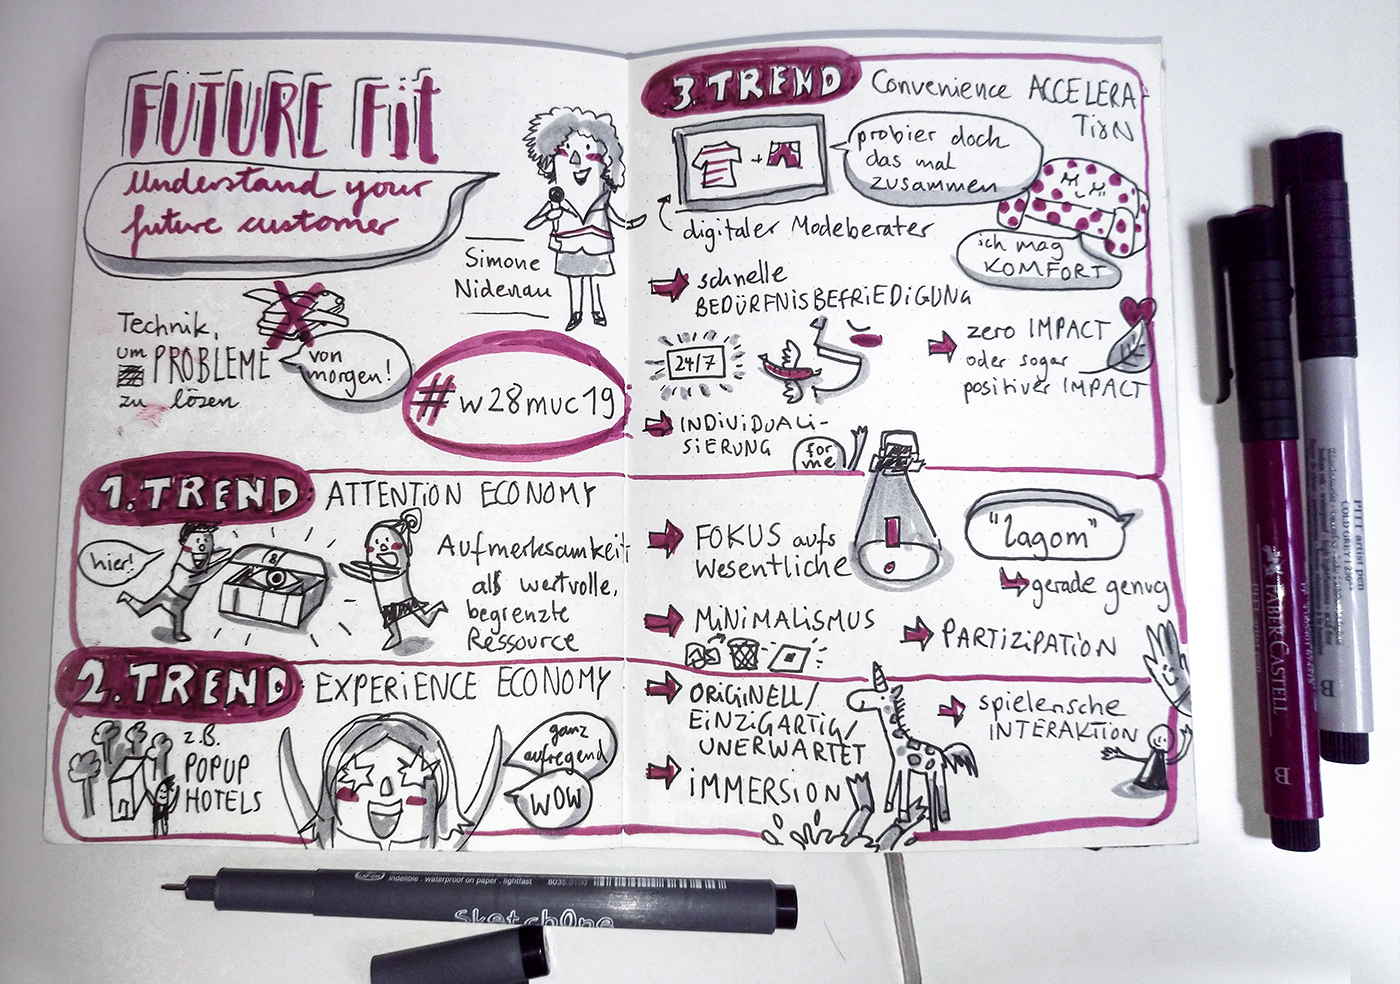 FUTURE Fit
Understand your
future customer
Simone
Nidenau
Technik,
um PROBLEME
zu lösen
von
morgen!
#w28muc19
1. TREND ATTENTION ECONOMY
hier!
Aufmerksamkeit
als wertvolle,
begrenzte
Ressource
FOKUS aufs
wesentliche
"Lagom"
gerade genug
MINIMALISMUS
PARTIZIPATION
2. TREND EXPERIENCE ECONOMY
z.B.
POPUP
HOTELS
ganz
aufregend
WOW
ORIGINELL/
EINZIGARTIG/
UNERWARTET
IMMERSION
spielerische
INTERAKTION
3. TREND Convenience ACCELERA-
TION
+
probier doch
das mal
zusammen
digitaler Modeberater
ich mag
KOMFORT
schnelle
BEDÜRFNISBEFRIEDIGUNG
24/7
zero IMPACT
oder sogar
positiver IMPACT
INDIVIDUALI-
SIERUNG
for
me
indelible . waterproof on paper . lightfast
sketchOne
FABER CASTELL
PITT artist pen
COLD GREY I 230**
B
B